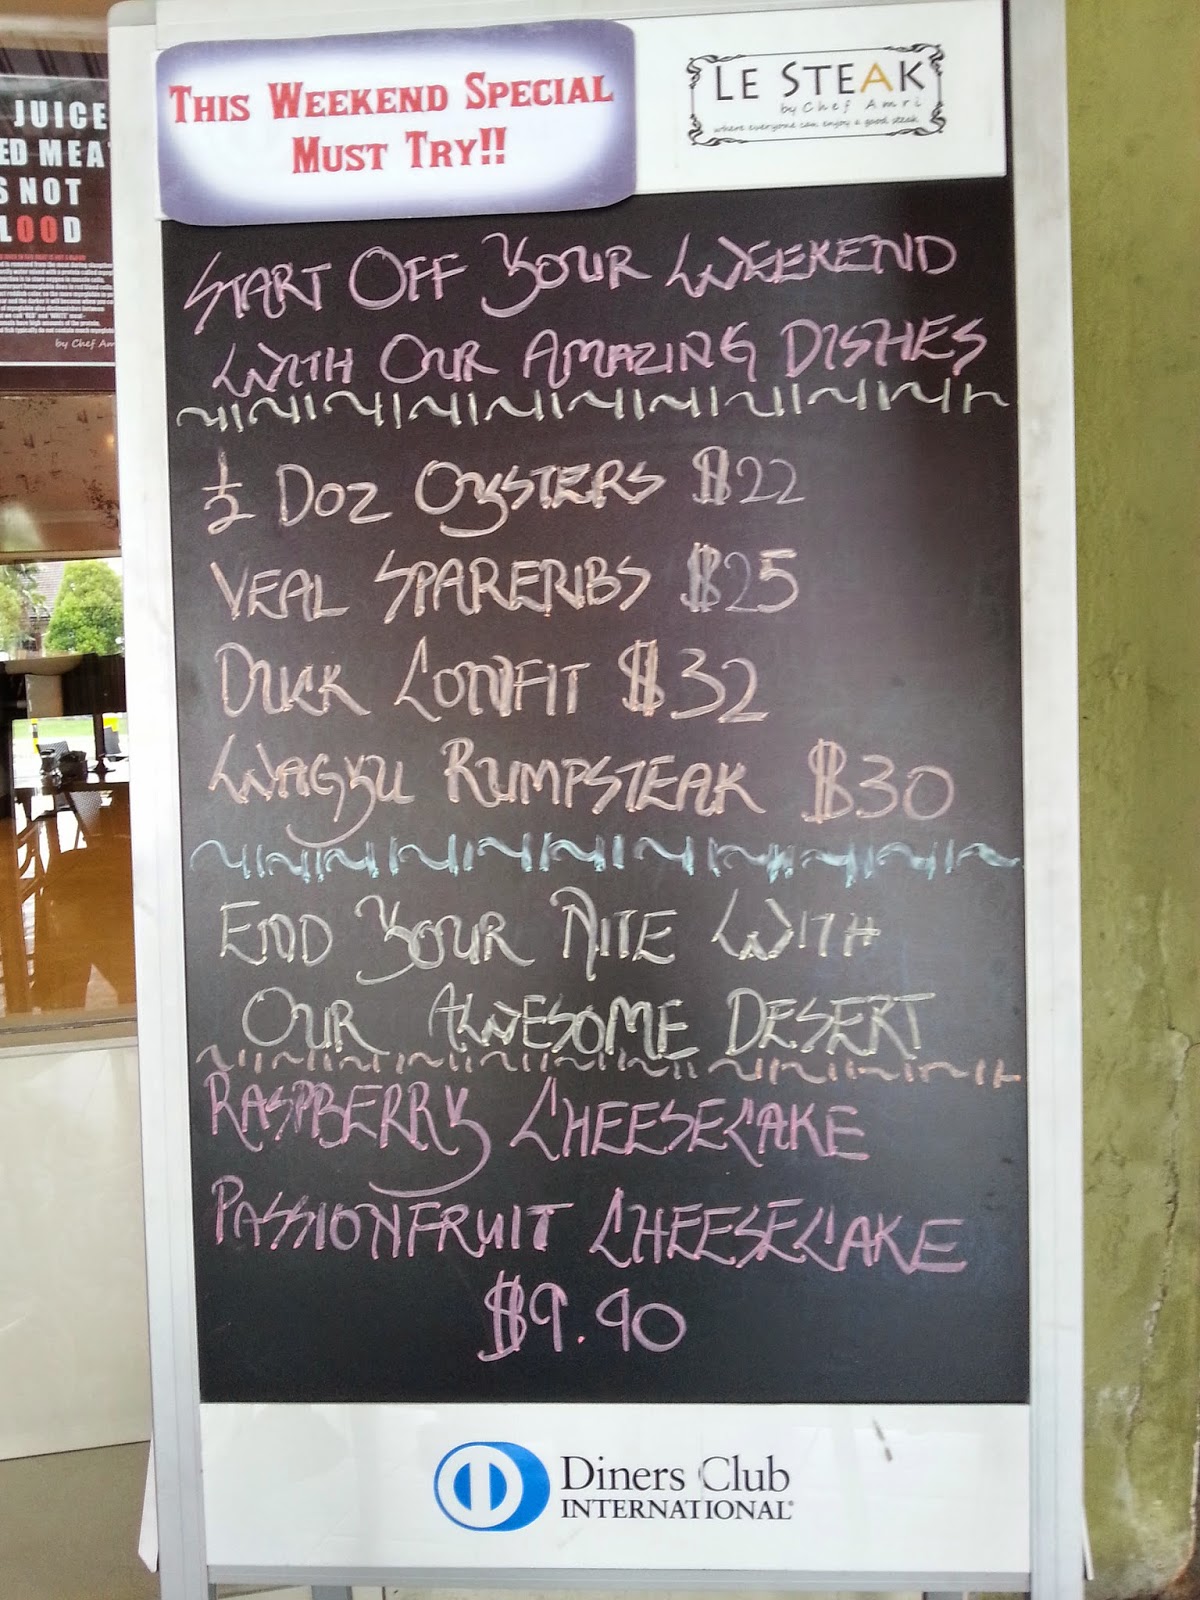 THIS WEEKEND SPECIAL
MUST TRY!!
LE STEAK
by Chef Amri
where everyone can enjoy a good steak
START OFF YOUR WEEKEND
WITH OUR AMAZING DISHES
½ DOZ OYSTERS $22
VEAL SPARERIBS $25
DUCK CONFIT $32
WAGYU RUMPSTEAK $30
END YOUR NITE WITH
OUR AWESOME DESERT
RASPBERRY CHEESECAKE
PASSIONFRUIT CHEESECAKE
$9.90
Diners Club
INTERNATIONAL®
JUICE
ED MEA
S NOT
LOOD
by Chef Am